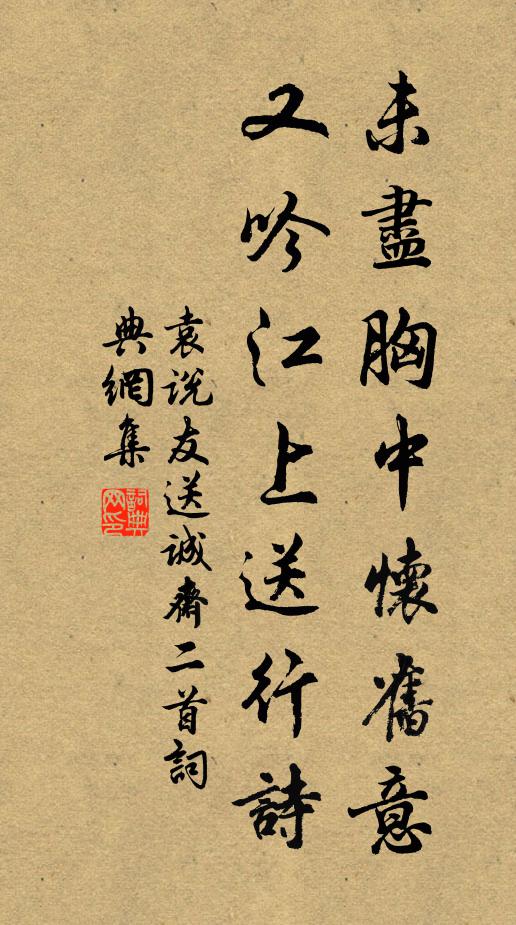 未盡胸中懷舊意
又吟江上送行詩
袁說友送誠齋二首詞
典網集
詞典
网印